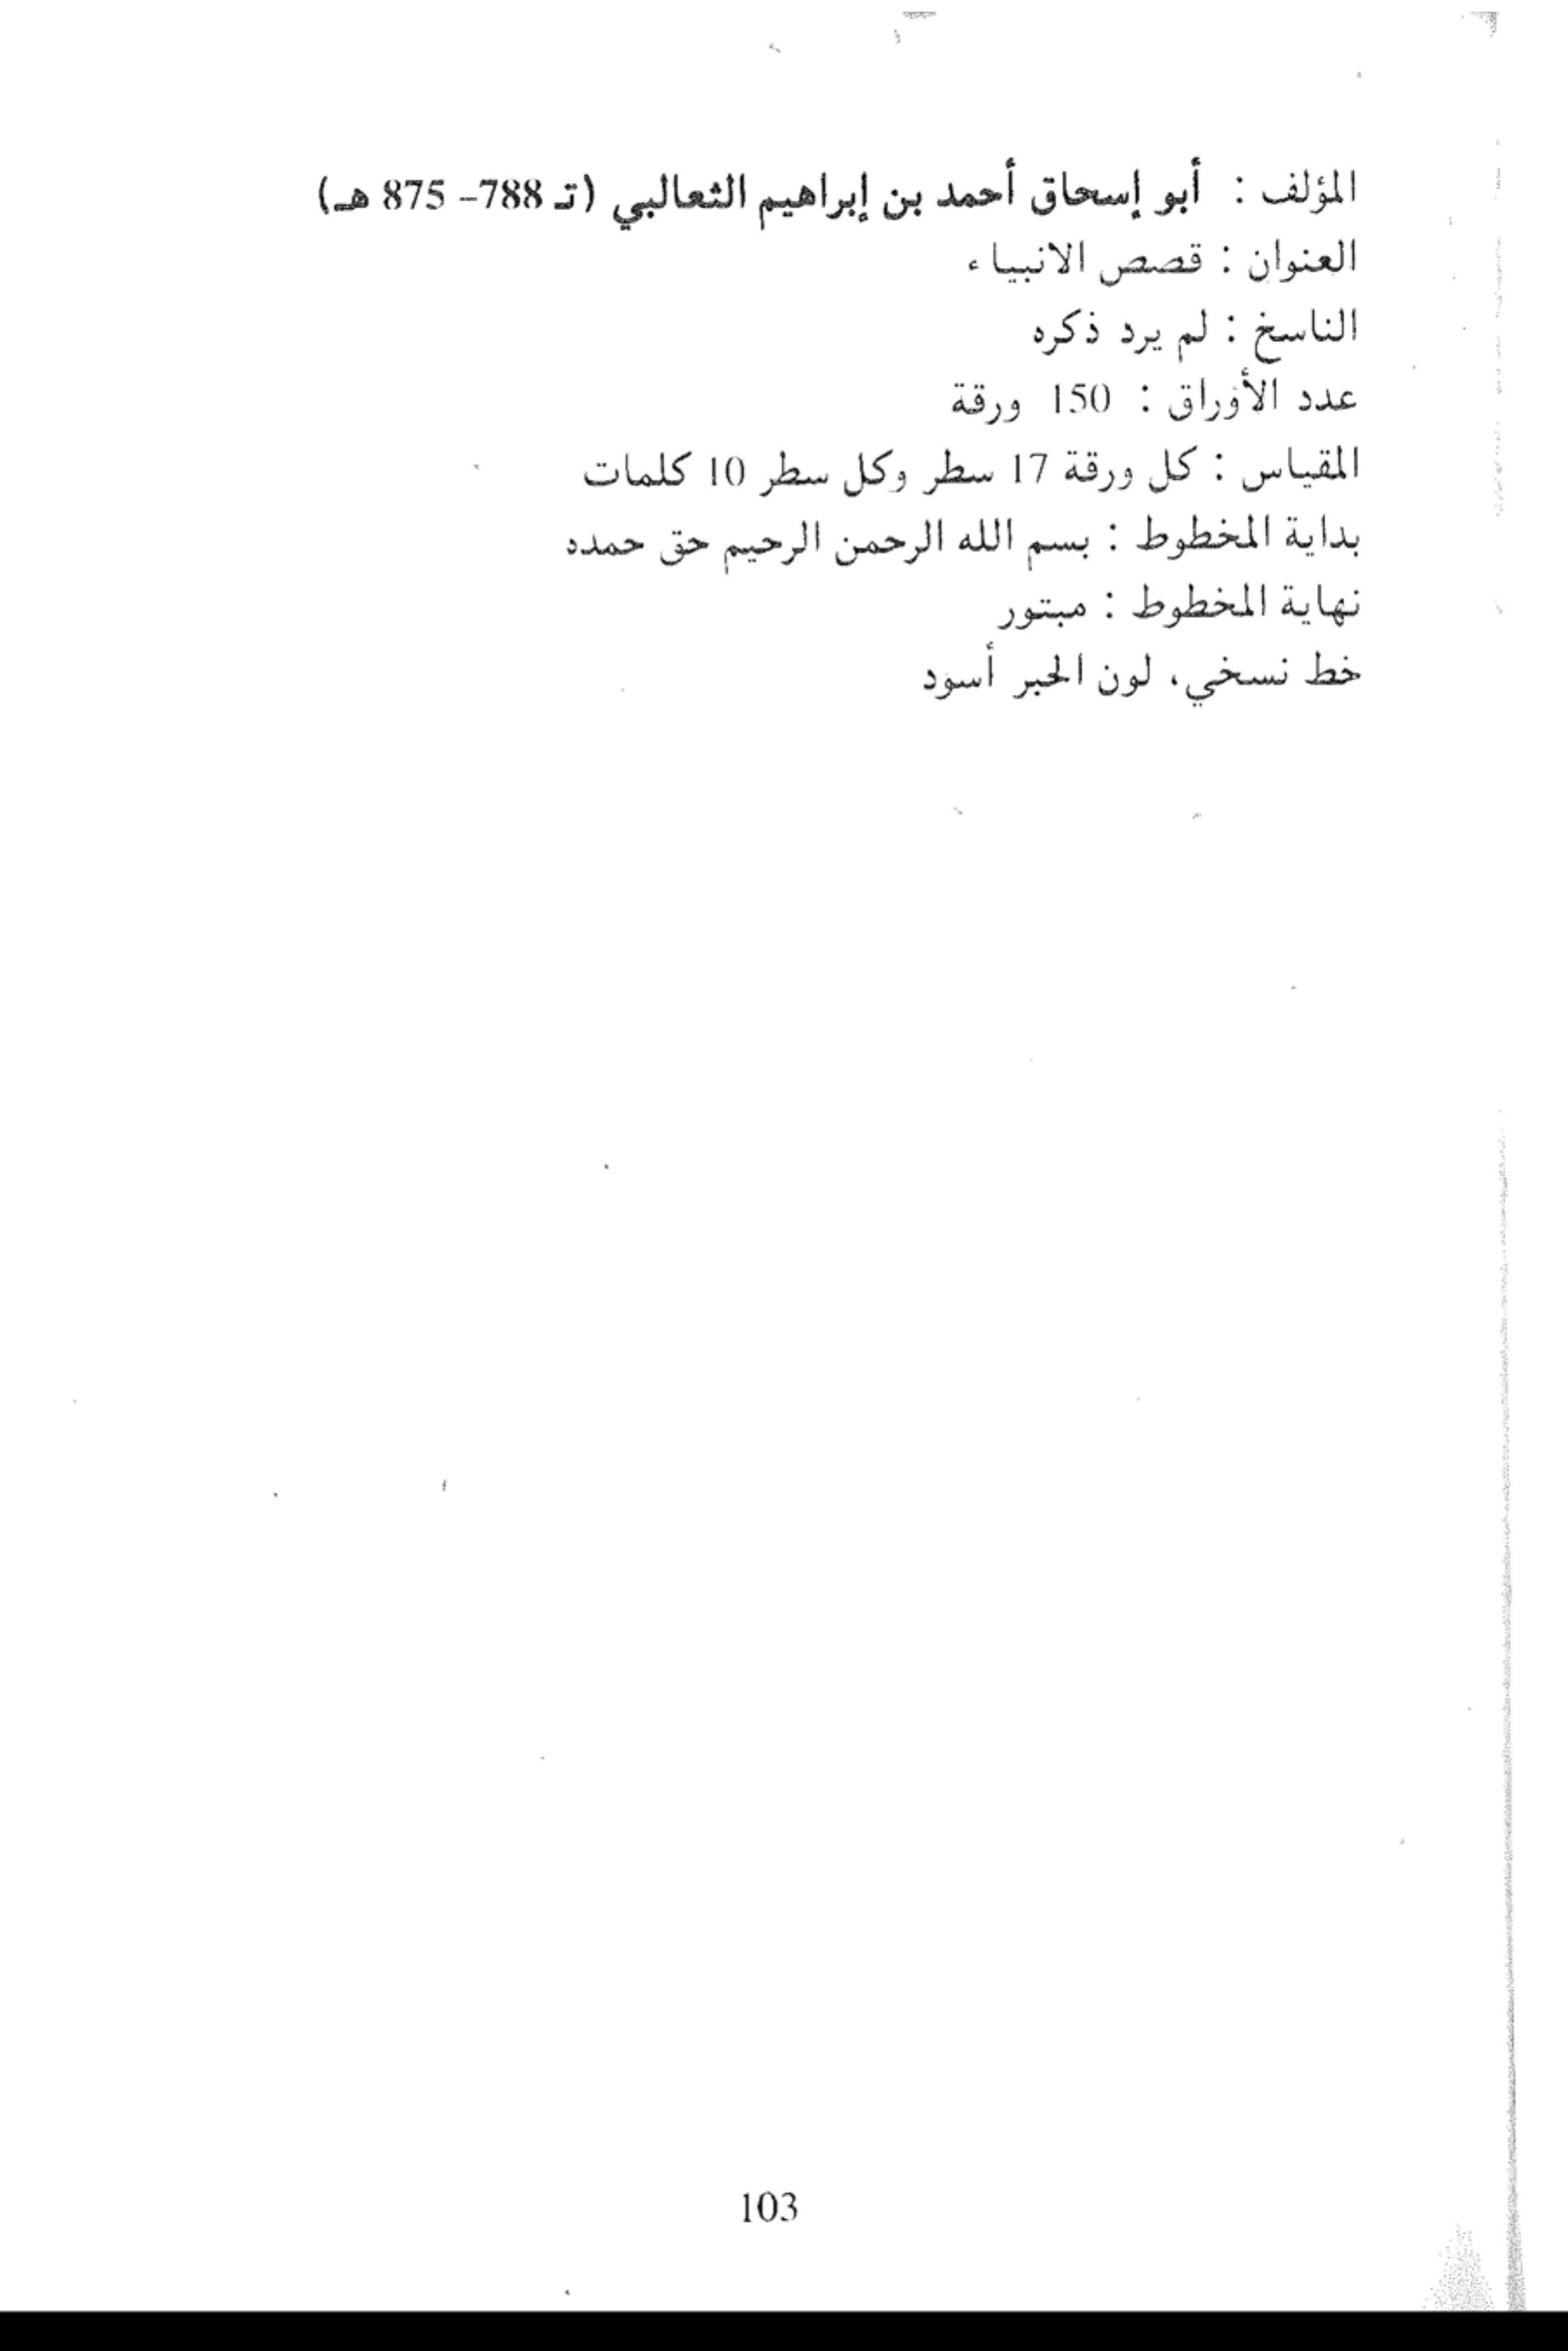 المؤلف : أبو إسحاق أحمد بن إبراهيم الثعالبي (تـ 788- 875 هـ)
العنوان : قصص الانبياء
الناسخ : لم يرد ذكره
عدد الأوراق : 150 ورقة
المقياس : كل ورقة 17 سطر وكل سطر 10 كلمات
بداية المخطوط : بسم الله الرحمن الرحيم حق حمده
نهاية المخطوط : مبتور
خط نسخي، لون الحبر أسود
103